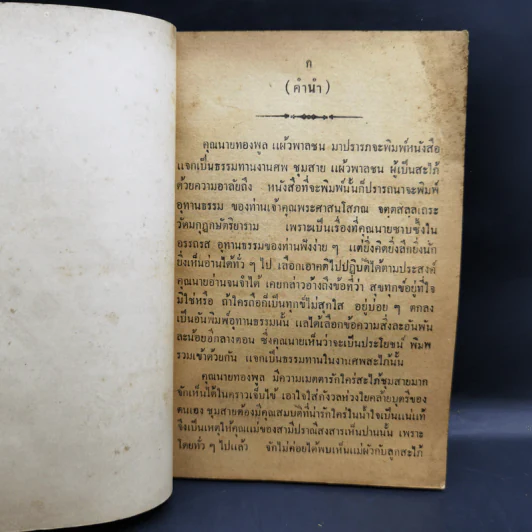 ก
(คำนำ)
คุณนายทองพูล แผ้วพาลชน มาปรารภจะพิมพ์หนังสือ
แจกเป็นธรรมทานงานศพ ชุมสาย แผ้วพาลชน ผู้เป็นสะใภ้
ด้วยความอาลัยถึง หนังสือที่จะพิมพ์นั้นก็ปรารถนาจะพิมพ์
อุทานธรรม ของท่านเจ้าคุณพระศาสนโสภณ จตฺตสลฺลเถระ
วัดมกุฎกษัตริยาราม เพราะเป็นเรื่องที่คุณนายซาบซึ้งใน
อรรถรส อุทานธรรมของท่านฟังง่าย ๆ แต่ยิ่งคิดยิ่งลึกยิ่งนัก
ยิ่งเห็นอ่านได้ทั่ว ๆ ไป เลือกเอาคติไปปฏิบัติได้ตามประสงค์
คุณนายอ่านจนจำได้ เคยกล่าวอ้างถึงข้อที่ว่า สุขทุกข์อยู่ที่ใจ
มิใช่หรือ ถ้าใครถือก็เป็นทุกข์ไม่สุกใส อยู่บ่อย ๆ ตกลง
เป็นอันพิมพ์อุทานธรรมนั้น แลได้เลือกข้อความสิ่งละอันพัน
ละน้อยอีกลางตอน ซึ่งคุณนายเห็นว่าจะเป็นประโยชน์ พิมพ์
รวมเข้าด้วยกัน แจกเป็นธรรมทานในงานศพสะใภ้นั้น
คุณนายทองพูล มีความเมตตารักใคร่สะใภ้ชุมสายมาก
จักเห็นได้ในคราวเจ็บไข้ เอาใจใส่กังวลห่วงใยคล้ายบุตรของ
ตนเอง ชุมสายต้องมีคุณสมบัติที่น่ารักใคร่ในน้ำใจเป็นแน่แท้
จึงเป็นเหตุให้คุณแม่ของสามีปราณีสงสารเห็นปานนั้น เพราะ
โดยทั่ว ๆ ไปแล้ว จักไม่ค่อยได้พบเห็นแม่ผัวกับลูกสะใภ้